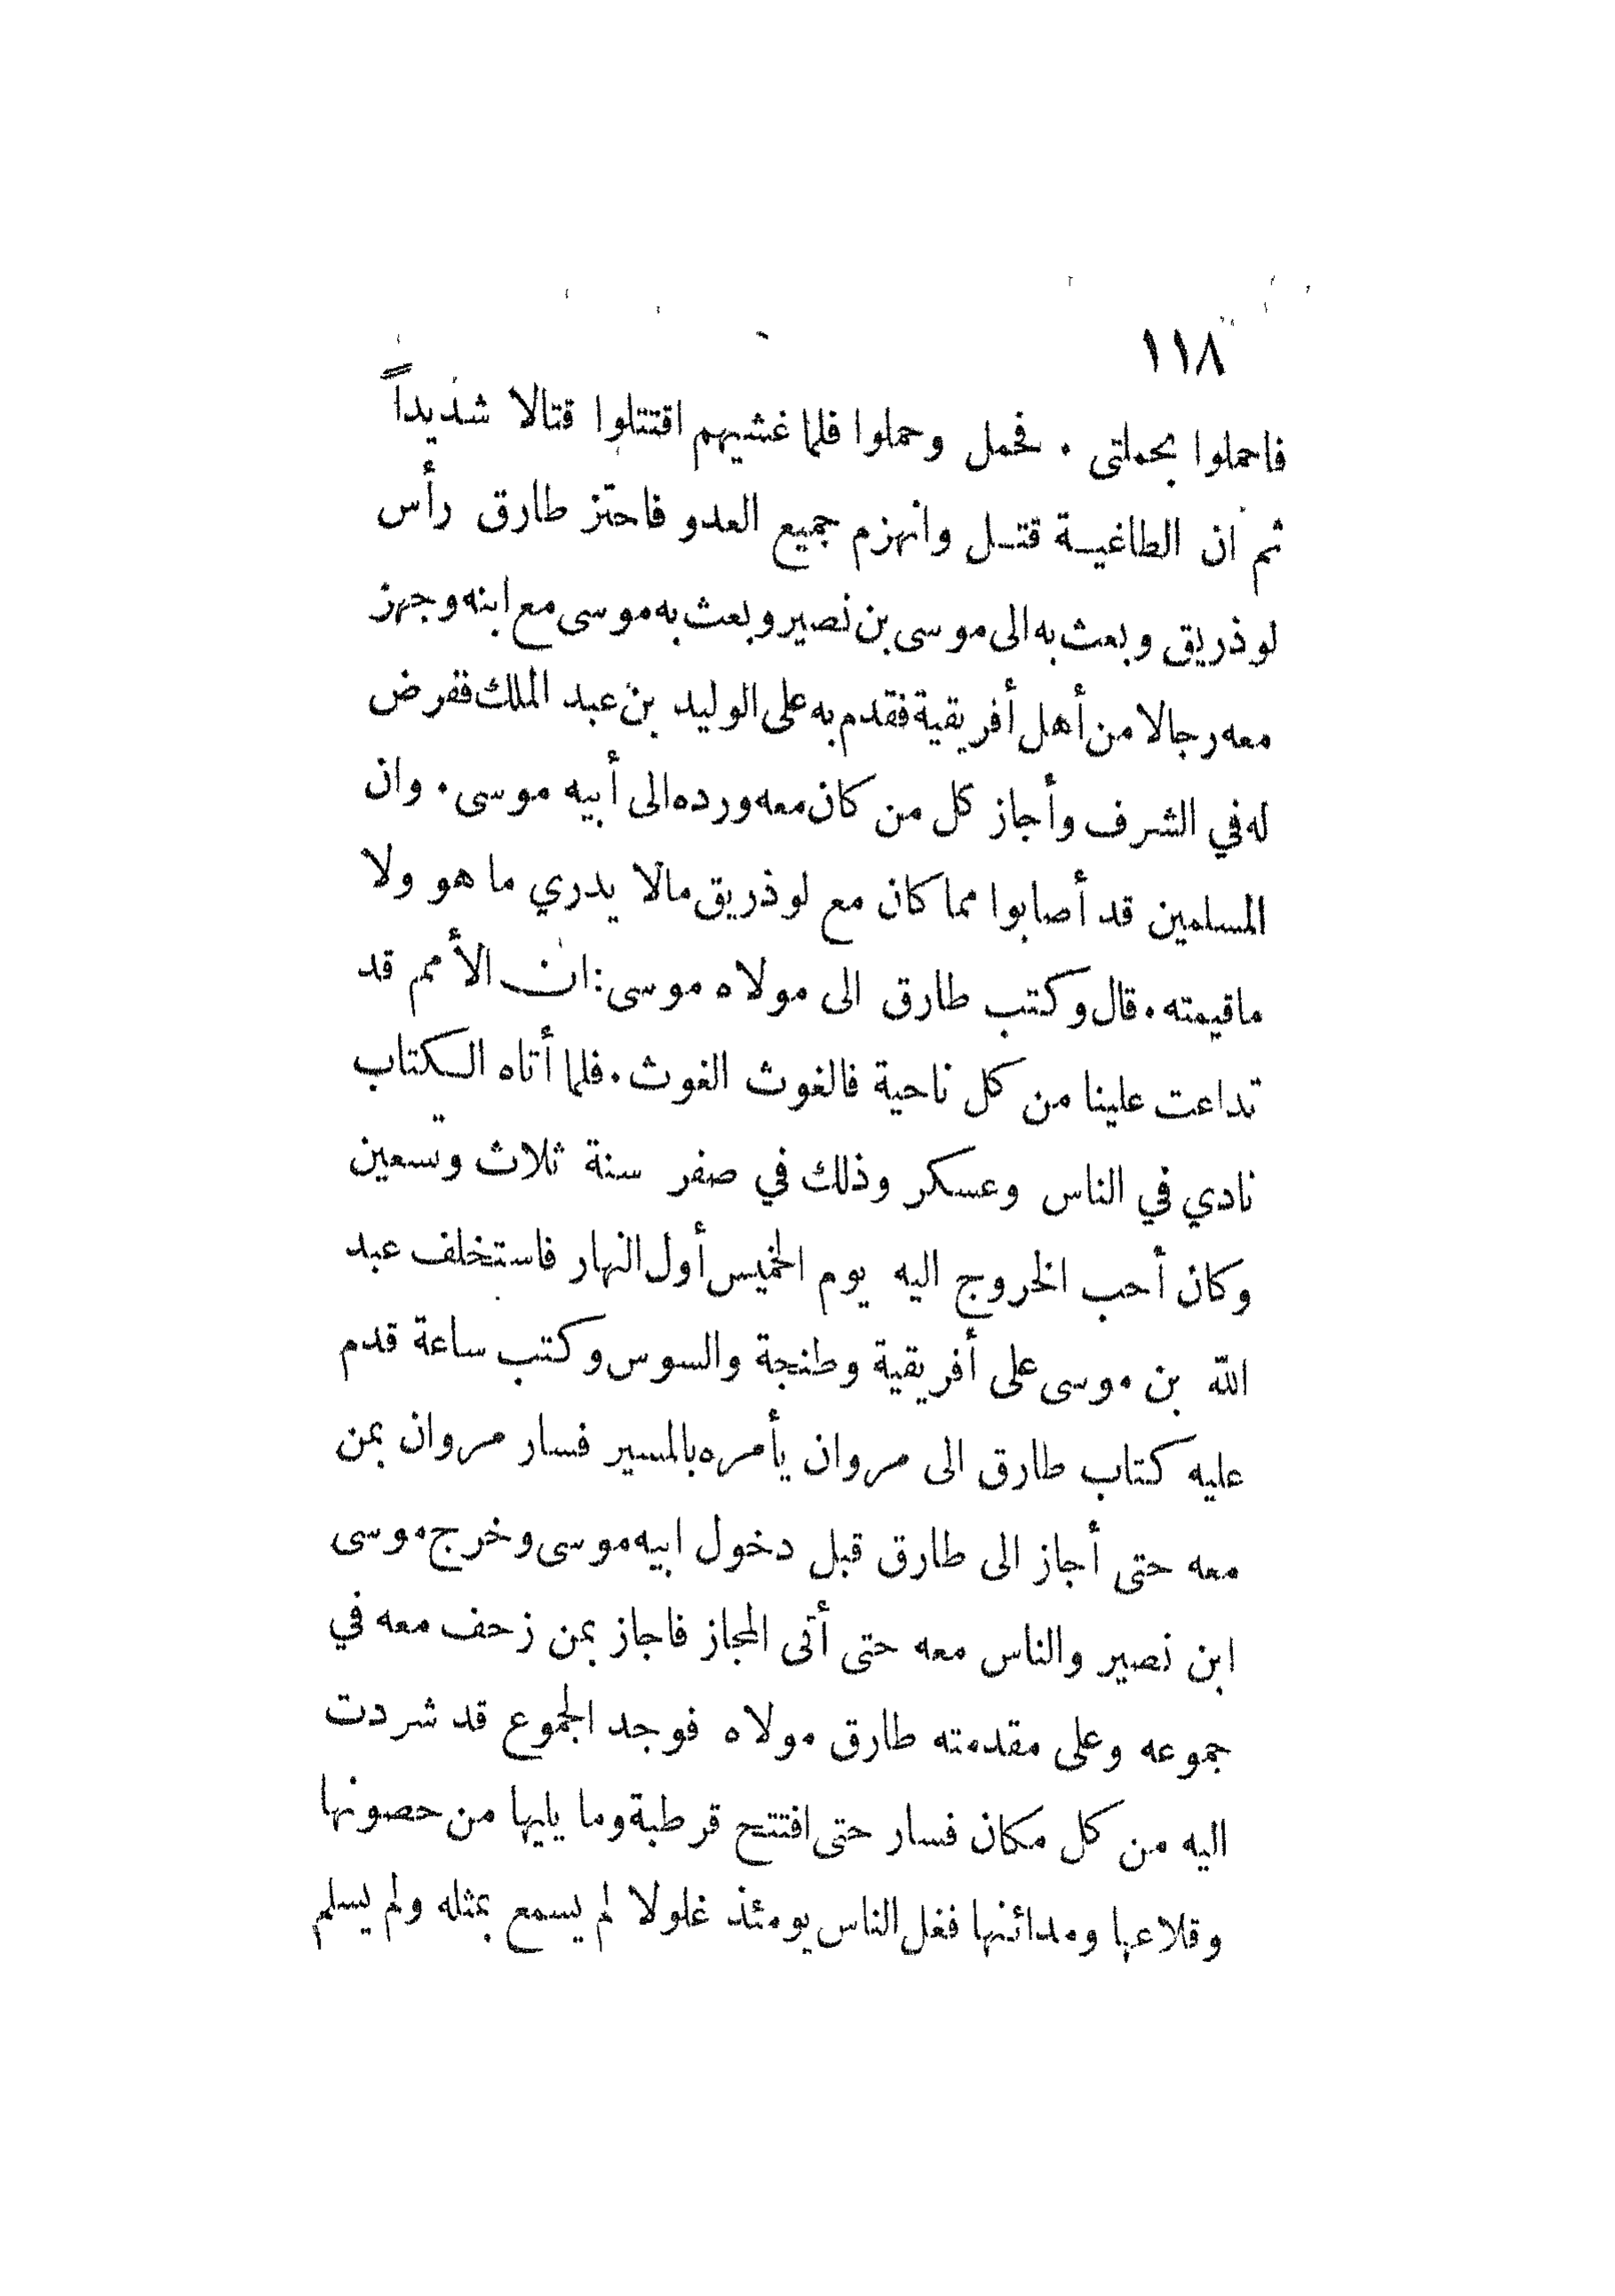 ١١٨
فاحملوا بحملتى . فحمل وحملوا فلما غشيهم اقتتلوا قتالا شديداً
ثم ان الطاغيـة قتـل وانهزم جميع العدو فاحتز طارق رأس
لوذريق وبعث به الى موسى بن نصير وبعث به موسى مع ابنه وجهز
معه رجالا من أهل أفريقية فقدم به على الوليد بن عبد الملك ففرض
له في الشرف وأجاز كل من كان معه ورده الى أبيه موسى . وان
المسلمين قد أصابوا مما كان مع لوذريق مالا يدري ما هو ولا
ما قيمته . قال وكتب طارق الى مولاه موسى : ان الأمم قد
تداعت علينا من كل ناحية فالغوث الغوث . فلما أتاه الكتاب
نادي في الناس وعسكر وذلك في صفر سنة ثلاث وتسعين
وكان أحب الخروج اليه يوم الخميس أول النهار فاستخلف عبد
الله بن موسى على أفريقية وطنجة والسوس وكتب ساعة قدم
عليه كتاب طارق الى مروان يأمره بالمسير فسار مروان بمن
معه حتى أجاز الى طارق قبل دخول ابيه موسى وخرج موسى
ابن نصير والناس معه حتى أتى المجاز فاجاز بمن زحف معه في
جموعه وعلى مقدمته طارق مولاه فوجد الجموع قد شردت
اليه من كل مكان فسار حتى افتتح قرطبة وما يليها من حصونها
وقلاعها ومدائنها فغل الناس يومئذ غلولا لم يسمع بمثله ولم يسلم